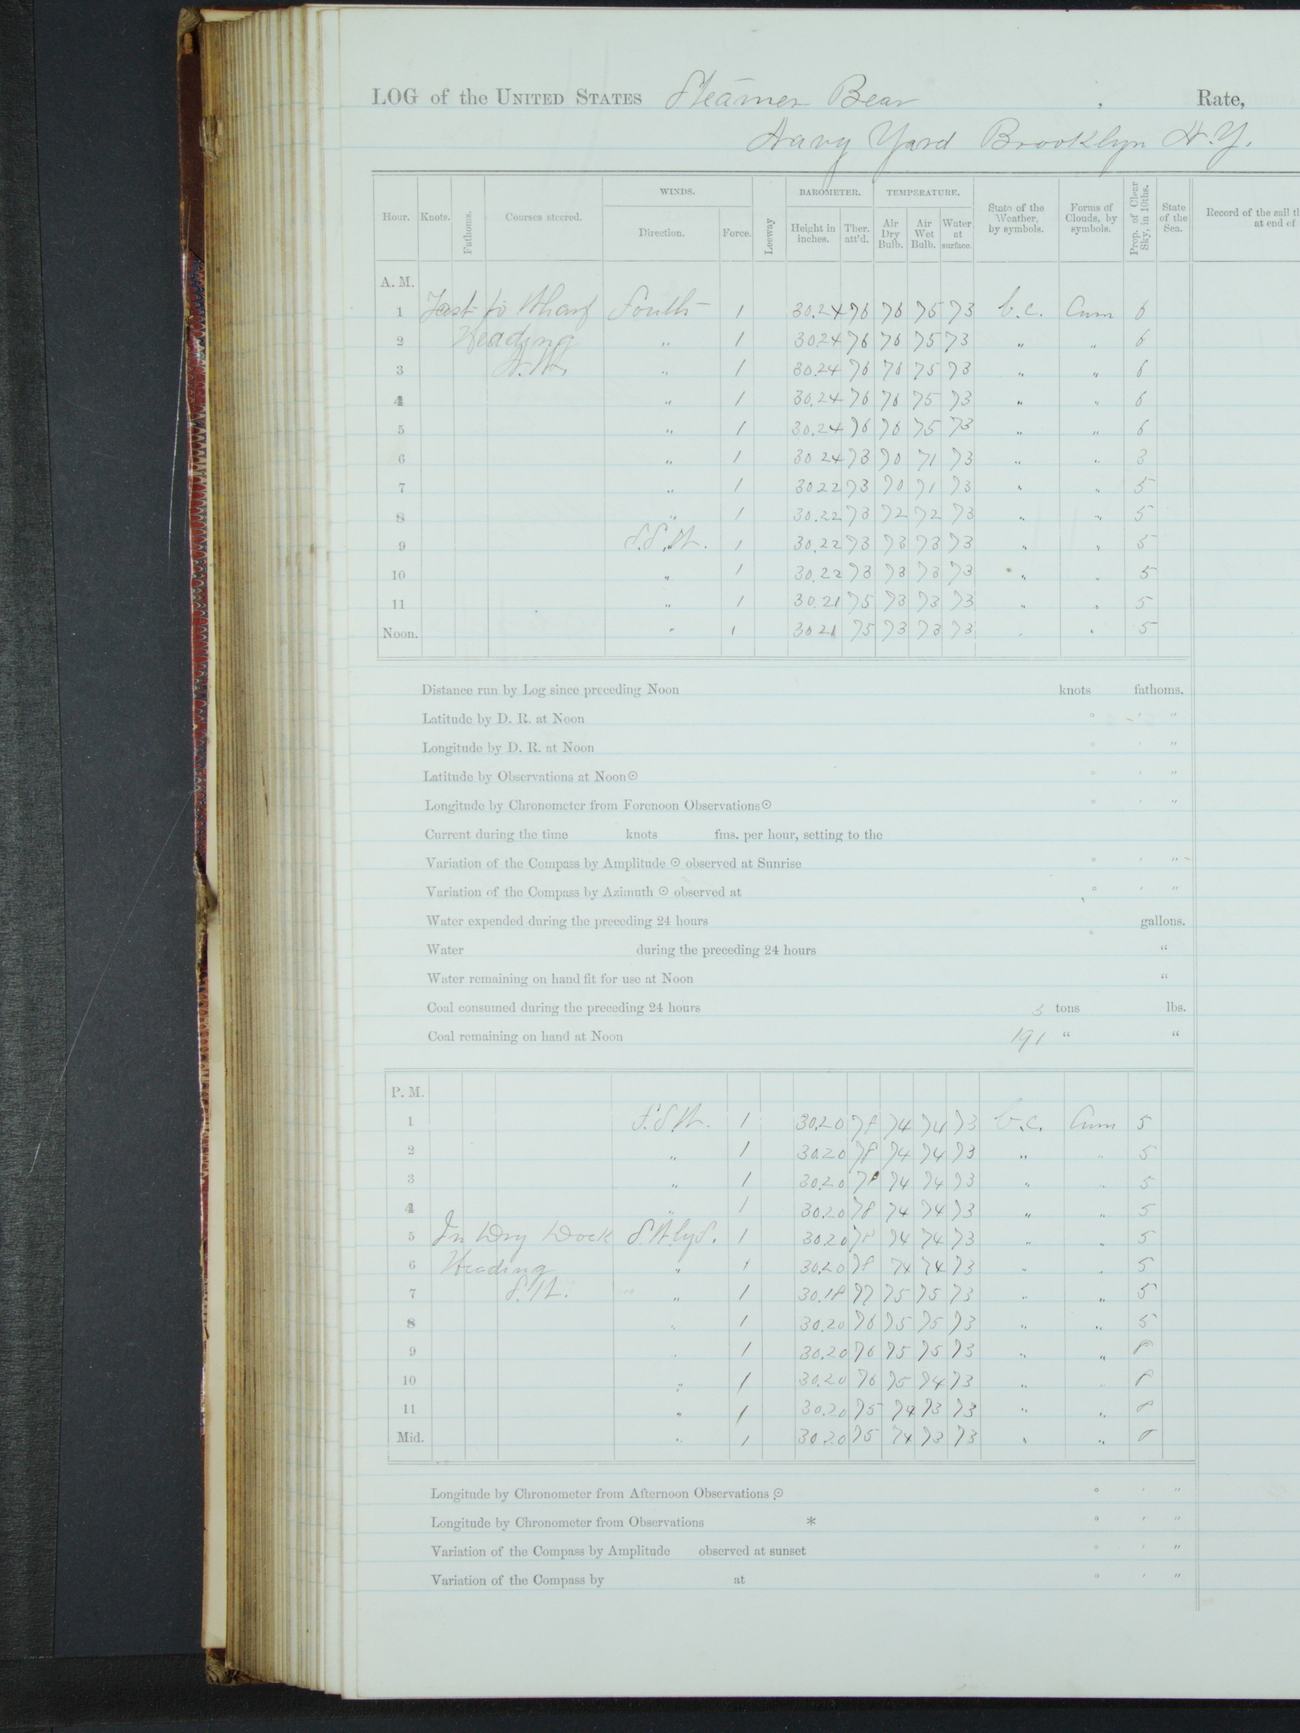 LOG of the UNITED STATES Steamer Bear , Rate,
Navy Yard Brooklyn N.Y.
Hour. Knots. Fathoms. Courses steered. WINDS. Direction. Force. Leeway BAROMETER. Height in inches. Ther. att'd. TEMPERATURE. Air Dry Bulb. Air Wet Bulb. Water at surface. State of the Weather, by symbols. Forms of Clouds, by symbols. Prop. of Clear Sky, in 10ths. State of the Sea. Record of the sail th
at end of
A. M.
1 Fast to Wharf South 1 30.24 76 76 75 73 b.c. Cum 6
2 Heading " 1 30.24 76 76 75 73 " " 6
3 " 1 30.24 76 76 75 73 " " 6
4 " 1 30.24 76 76 75 73 " " 6
5 " 1 30.24 76 76 75 73 " " 6
6 " 1 30 24 73 70 71 73 " " 3
7 " 1 30 22 73 70 71 73 " " 5
8 " 1 30.22 73 72 72 73 " " 5
9 S.S.W. 1 30.22 73 73 73 73 " " 5
10 " 1 30.22 73 73 73 73 " " 5
11 " 1 30.21 75 73 73 73 " " 5
Noon. " 1 30 21 75 73 73 73 " " 5
Distance run by Log since preceding Noon knots fathoms.
Latitude by D. R. at Noon ° ' "
Longitude by D. R. at Noon ° ' "
Latitude by Observations at Noon ☉ ° ' "
Longitude by Chronometer from Forenoon Observations ☉ ° ' "
Current during the time knots fms. per hour, setting to the
Variation of the Compass by Amplitude ☉ observed at Sunrise ° ' "
Variation of the Compass by Azimuth ☉ observed at ° ' "
Water expended during the preceding 24 hours gallons.
Water during the preceding 24 hours "
Water remaining on hand fit for use at Noon "
Coal consumed during the preceding 24 hours 3 tons lbs.
Coal remaining on hand at Noon 191 " "
P. M.
1 S.S.W. 1 30.20 78 74 74 73 b.c. Cum 5
2 " 1 30.20 78 74 74 73 " " 5
3 " 1 30.20 78 74 74 73 " " 5
4 " 1 30.20 78 74 74 73 " " 5
5 In Dry Dock S.W.byS. 1 30.20 78 74 74 73 " " 5
6 Heading " 1 30.20 78 74 74 73 " " 5
7 S.W. " 1 30.18 77 75 75 73 " " 5
8 " 1 30.20 76 75 75 73 " " 5
9 " 1 30.20 76 75 75 73 " " 8
10 " 1 30.20 76 75 74 73 " " 8
11 " 1 30.20 75 74 73 73 " " 8
Mid. " 1 30 20 75 74 73 73 " " 8
Longitude by Chronometer from Afternoon Observations ☉ ° ' "
Longitude by Chronometer from Observations * ° ' "
Variation of the Compass by Amplitude observed at sunset ° ' "
Variation of the Compass by at ° ' "